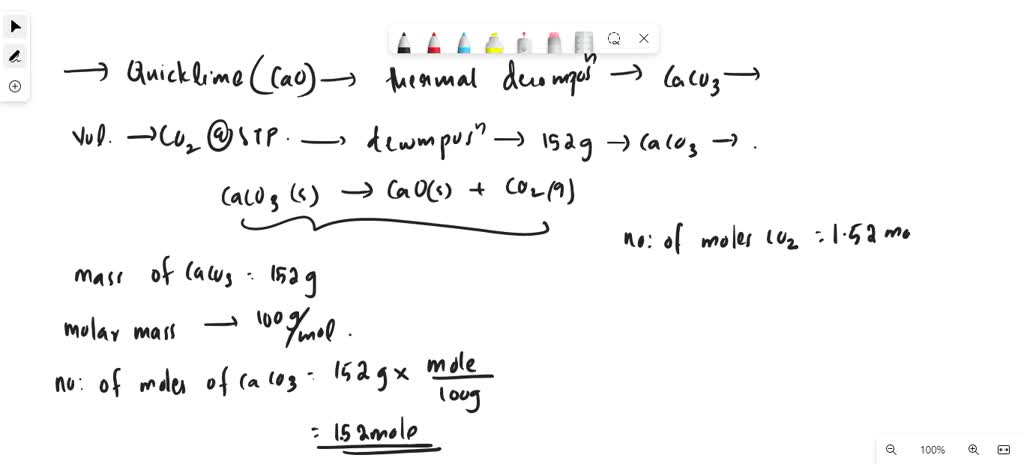 → Quicklime (CaO) → thermal decomposⁿ → CaCO₃ →
Vol. → CO₂ @ STP. → decomposⁿ → 152g → CaCO₃ → .
CaCO₃ (s) → CaO(s) + CO₂(g)
no: of moles CO₂ = 1.52 mo
mass of CaCO₃ = 152g
molar mass → 100g/mol.
no: of moles of CaCO₃ = 152 g × mole/100g
= 1.52 mole
100%